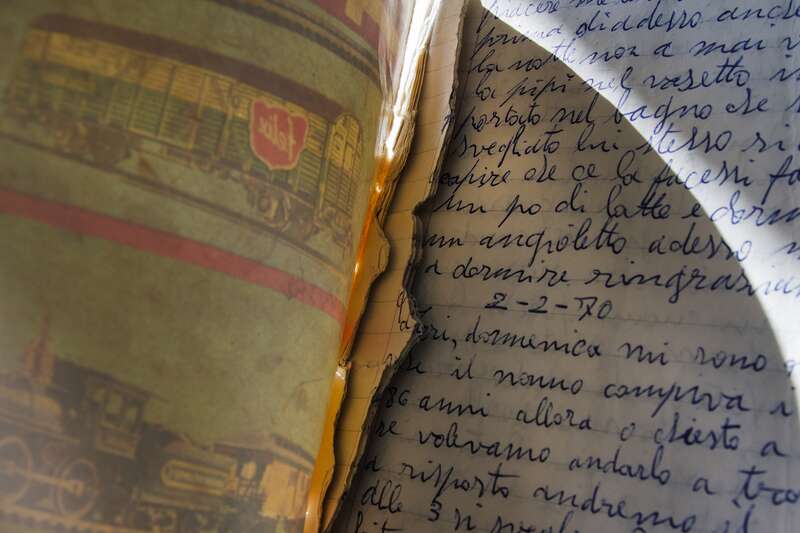 felix
piacere me
prima di adesso anche
la notte non a mai
la pipì nel vasetto
portato nel bagno che
svegliato lui stesso si
capire che ce la facessi
un po di latte e
un angioletto adesso
a dormire
2-2-70
Ieri, domenica mi sono
il nonno compiva
86 anni allora o chiesto a
volevamo andarlo a
risposto andremo
alle 3 si